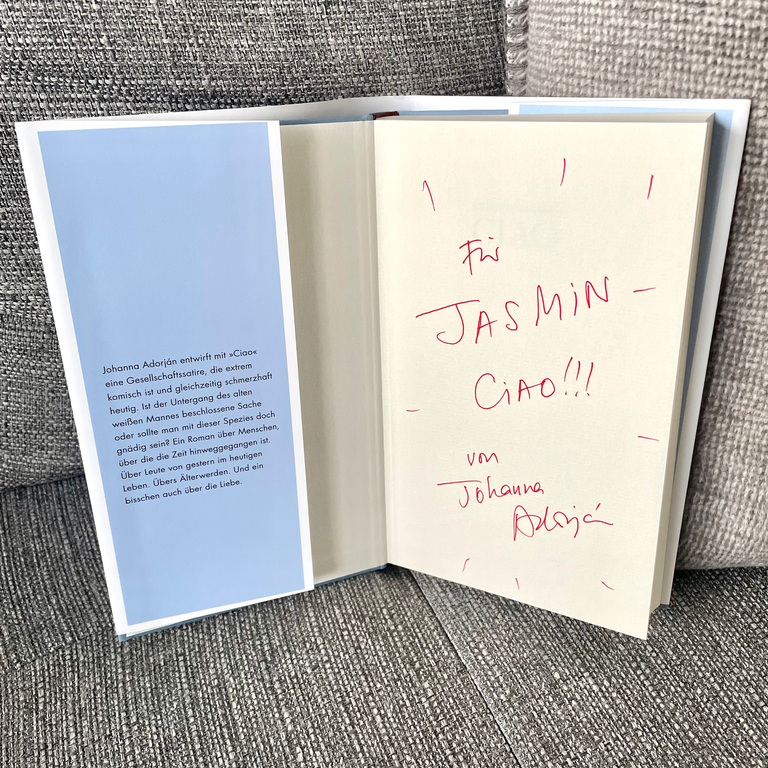 Johanna Adorján entwirft mit »Ciao«
eine Gesellschaftssatire, die extrem
komisch ist und gleichzeitig schmerzhaft
heutig. Ist der Untergang des alten
weißen Mannes beschlossene Sache
oder sollte man mit dieser Spezies doch
gnädig sein? Ein Roman über Menschen,
über die die Zeit hinweggegangen ist.
Über Leute von gestern im heutigen
Leben. Übers Älterwerden. Und ein
bisschen auch über die Liebe.
Für
JASMIN
CIAO!!!
von
Johanna
Adorján